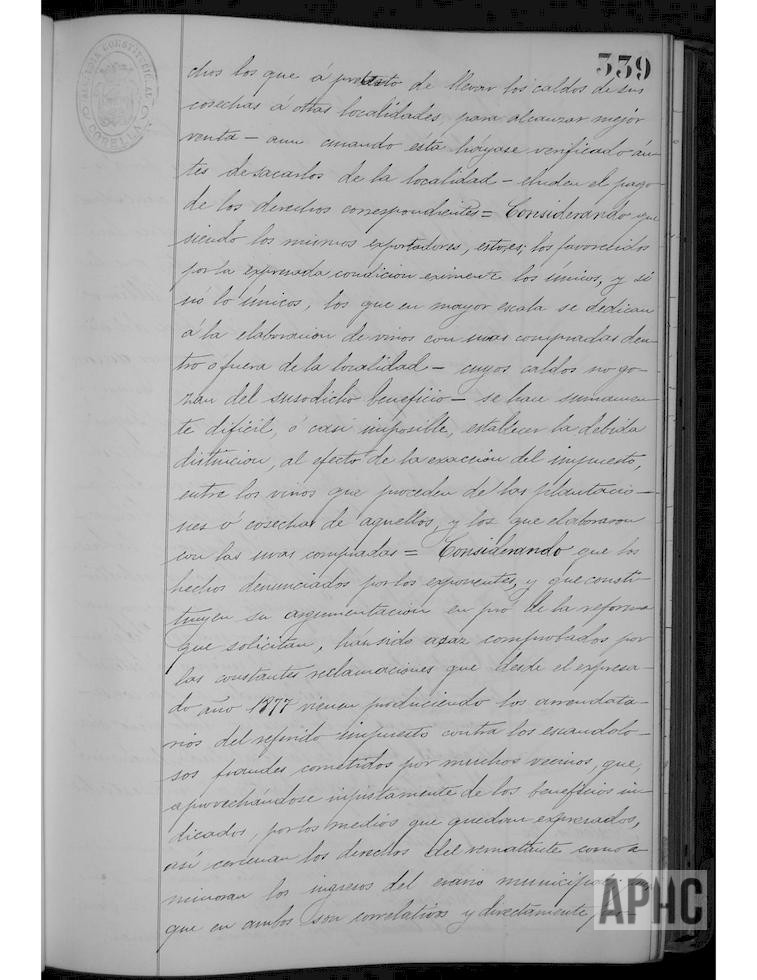 339
ALCALDIA CONSTITUCIONAL
CORELLA
chos los que á pretesto de llevar los caldos de sus
cosechas á otras localidades, para alcanzar mejor
venta - aun cuando ésta háyase verificado án-
tes de sacarlos de la localidad - eluden el pago
de los derechos correspondientes = Considerando que
siendo los mismos exportadores, esto es, los favorecidos
por la expresada condicion eximente los únicos, y si
nó lo únicos, los que en mayor escala se dedican
á la elaboracion de vinos con uvas compradas den-
tro o fuera de la localidad - cuyos caldos no go-
zan del susodicho beneficio - se hace sumamen-
te dificil, ó casi imposible, establecer la debida
distincion, al efecto de la exaccion del impuesto,
entre los vinos que proceden de las plantacio-
nes ó cosechas de aquellos, y los que elaboraron
con las uvas compradas = Considerando que los
hechos denunciados por los exponentes, y que consti-
tuyen su argumentacion en pró de la reforma
que solicitan, han sido asaz comprobados por
las constantes reclamaciones que desde el expresa-
do año 1877 vienen produciendo los arrendata-
rios del referido impuesto contra los escandolo-
sos fraudes cometidos por muchos vecinos, que,
aprovechándose injustamente de los beneficios in-
dicados, por los medios que quedan expresados,
así cercenan los derechos del rematante como a
minoran los ingresos del erario municipal
que en ambos son correlativos y directamente
APHC